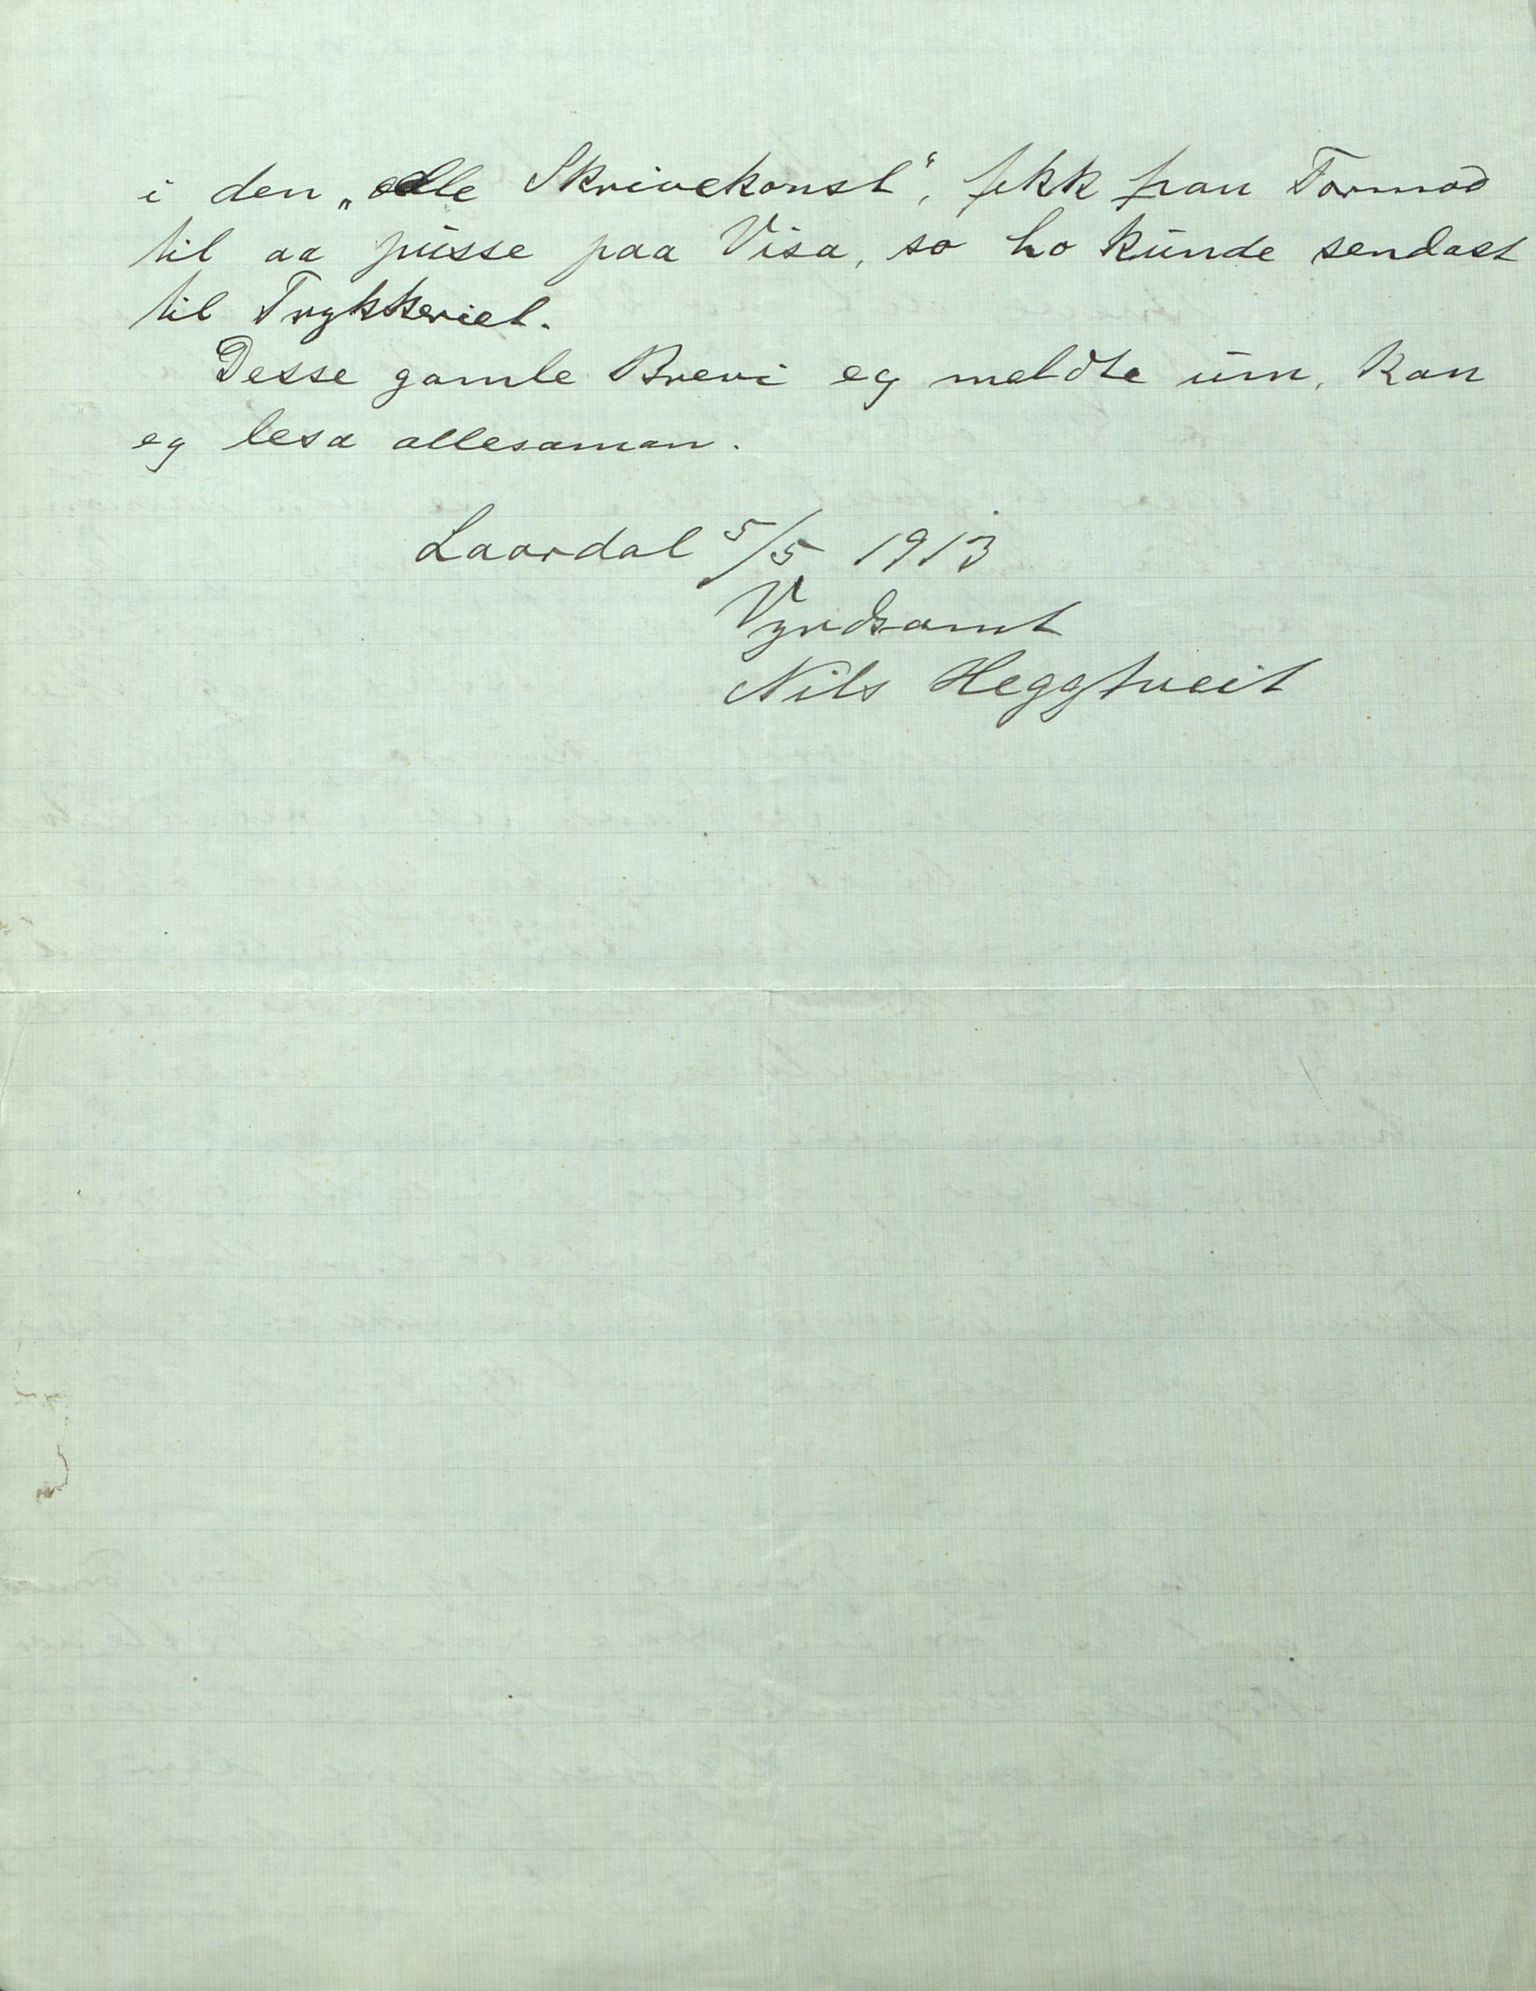 i den „edle Skrivekonst“, fekk han Tormod
til aa pusse paa Visa, so ho kunde sendast
til Trykkeriet.
Desse gamle Brevi eg meldte um, kan
eg lesa allesaman.
Laardal 5/5 1913
Vyrdsamt
Nils Heggtveit